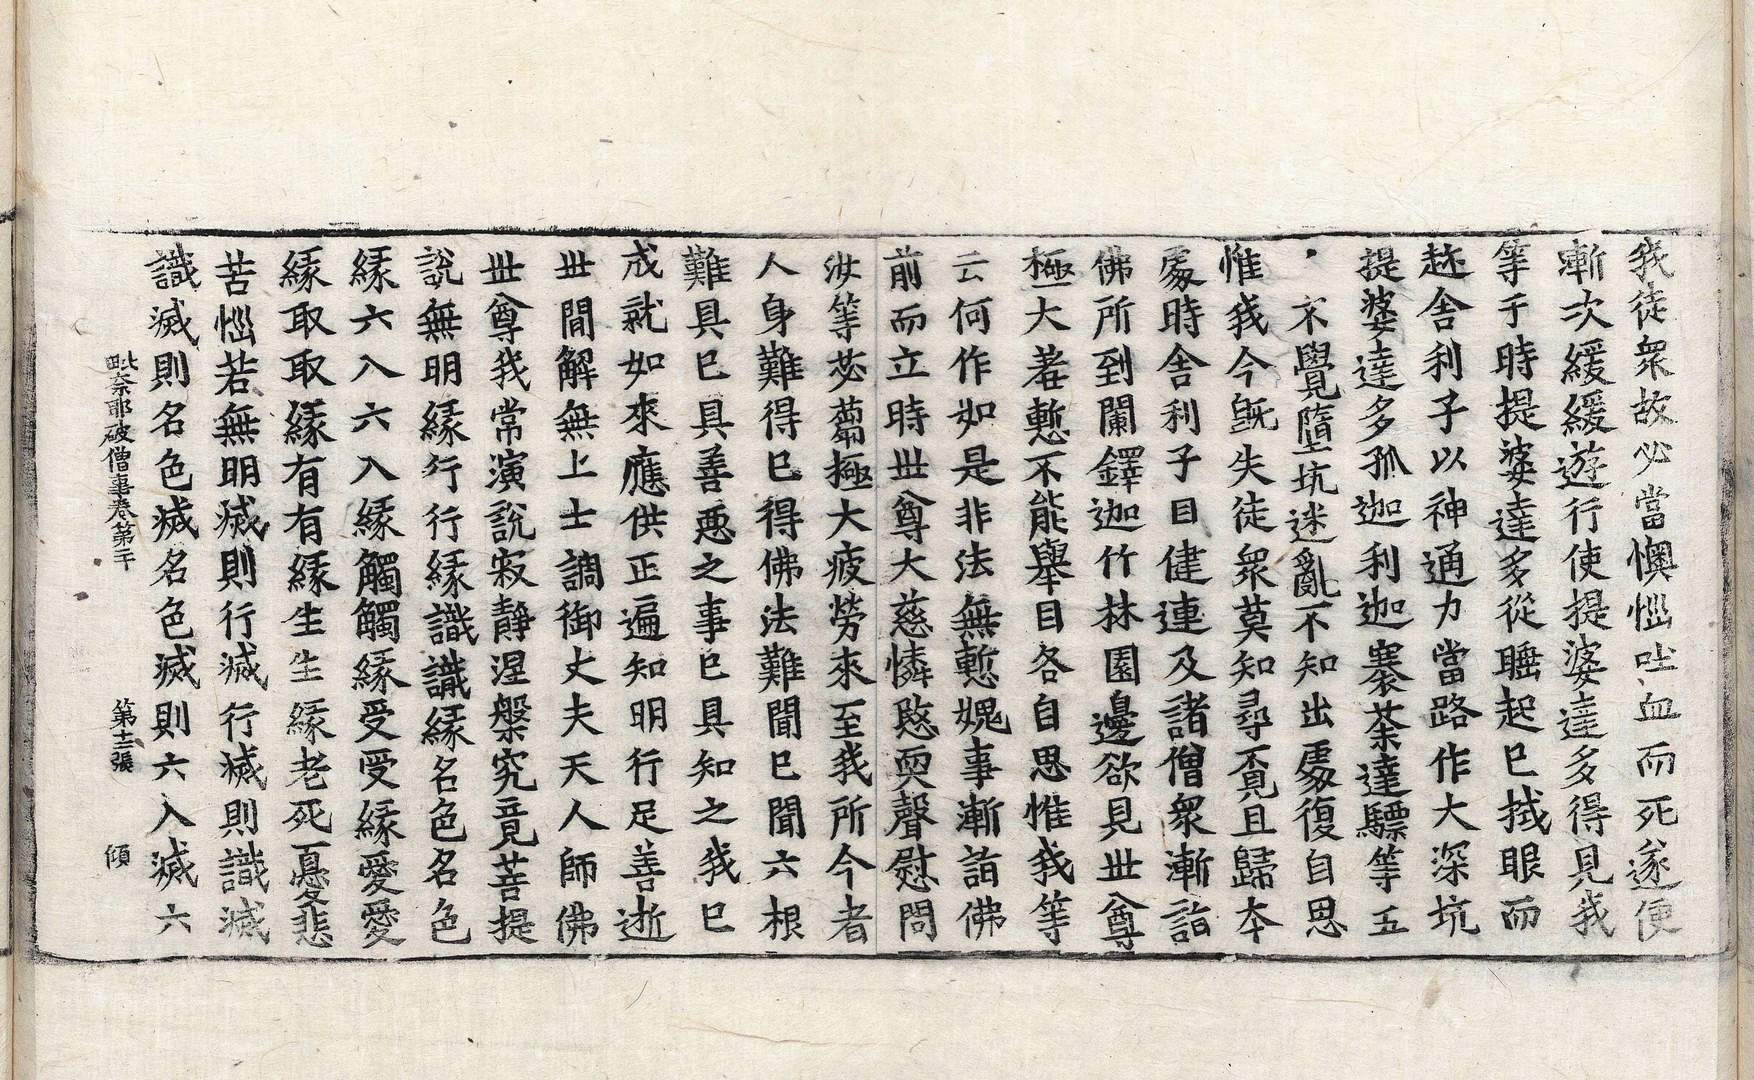 我徒衆故必當懊惱吐血而死遂便
漸次緩緩遊行使提婆達多得見我
等于時提婆達多從睡起已拭眼而
趂舍利子以神通力當路作大深坑
提婆達多孤迦利迦褰荼達驃等五
不覺墮坑迷亂不知出處復自思
惟我今旣失徒衆莫知尋覔且歸本
處時舍利子目健連及諸僧衆漸詣
佛所到闌鐸迦竹林園邊欲見世尊
極大羞慙不能舉目各自思惟我等
云何作如是非法無慙媿事漸詣佛
前而立時世尊大慈憐愍耎聲慰問
汝等苾蒭極大疲勞來至我所今者
人身難得已得佛法難聞已聞六根
難具已具善惡之事已具知之我已
成就如來應供正遍知明行足善逝
世間解無上士調御丈夫天人師佛
世尊我常演說寂靜涅槃究竟菩提
說無明緣行行緣識識緣名色名色
緣六入六入緣觸觸緣受受緣愛愛
緣取取緣有有緣生生緣老死憂悲
苦惱若無明滅則行滅行滅則識滅
識滅則名色滅名色滅則六入滅六
毗奈耶破僧事卷第二十 第十二張 傾